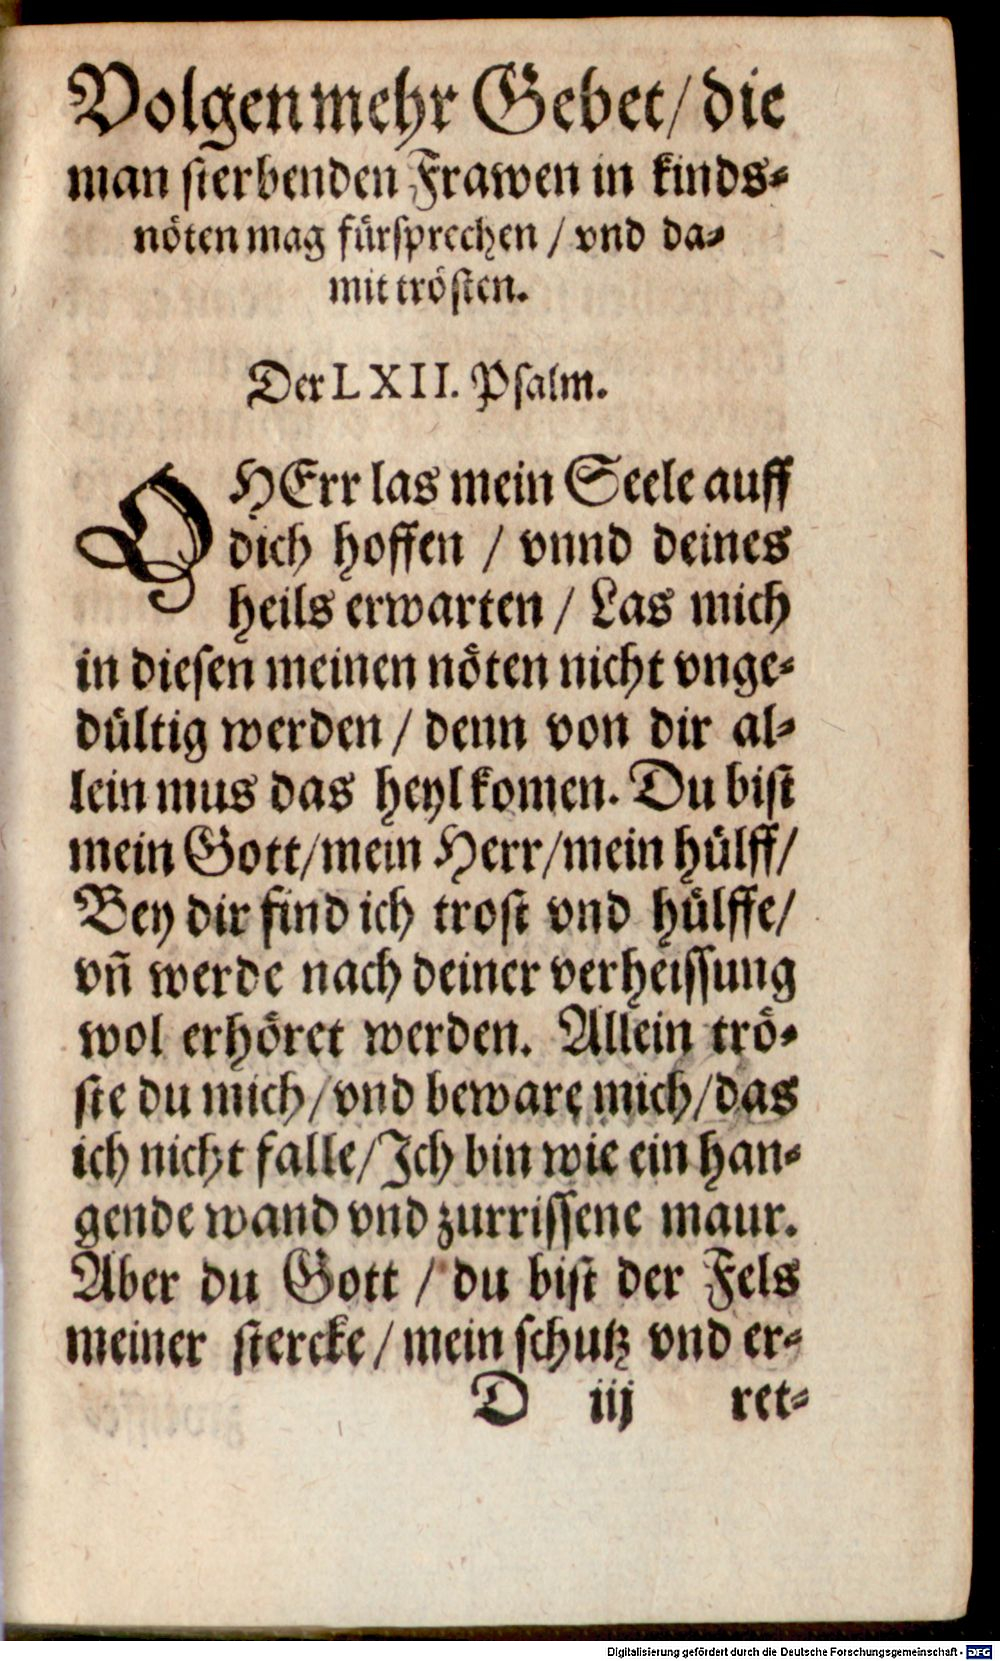 Volgen mehr Gebet/ die
man sterbenden Frawen in kinds-
nöten mag fürsprechen / vnd da-
mit trösten.
Der LXII. Psalm.
O HErr las mein Seele auff
dich hoffen / vnnd deines
heils erwarten / Las mich
in diesen meinen nöten nicht vnge-
dültig werden / denn von dir al-
lein mus das heyl komen. Du bist
mein Gott/mein Herr/mein hülff/
Bey dir find ich trost vnd hülffe/
vñ werde nach deiner verheissung
wol erhöret werden. Allein trö-
ste du mich/vnd beware mich/das
ich nicht falle/Ich bin wie ein han-
gende wand vnd zurrissene maur.
Aber du Gott / du bist der Fels
meiner stercke/mein schutz vnd er-
D iij ret-
Digitalisierung gefördert durch die Deutsche Forschungsgemeinschaft - DFG